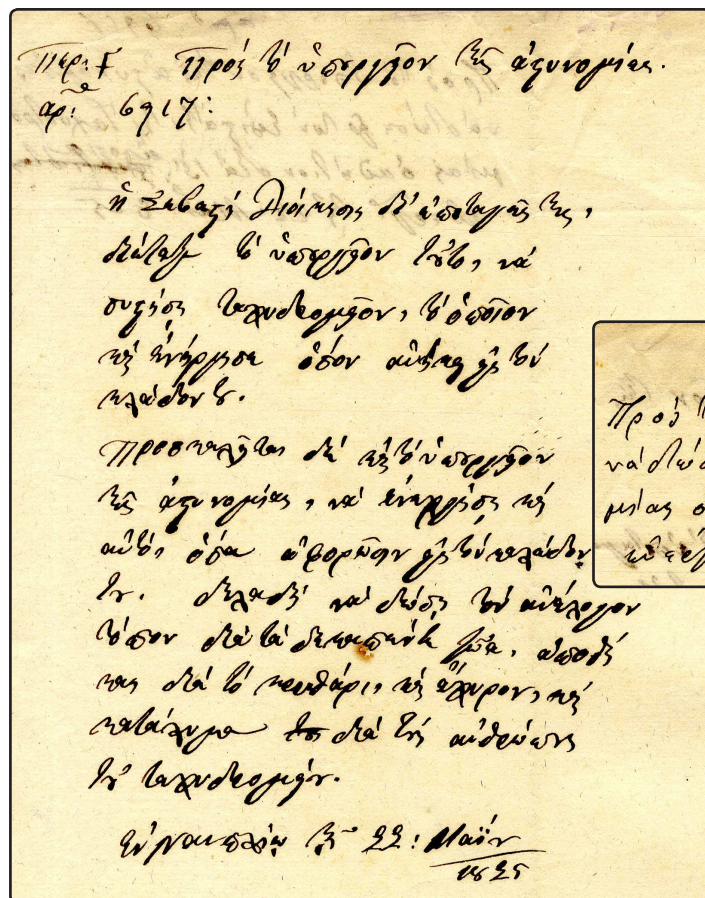 Περ: Γ Πρὸς τὸ ὑπουργεῖον τῆς ἀστυνομίας.
ἀρι: 6917:
ἡ Σεβαστὴ Διοίκησις δι' ἐπιταγῆς της,
διέταξε τὸ ὑπουργεῖον τοῦτο, νὰ
συστήσῃ ταχυδρομεῖον, τὸ ὁποῖον
καὶ ἐνήργησε ὅσον εἰς τὸν
κλάδον του.
Προσκαλεῖται διὰ καὶ τὸ ὑπουργεῖον
τῆς ἀστυνομίας, νὰ ἐνεργήσῃ καὶ
αὐτό, ὅσα ἀφορῶσιν εἰς τὸν κλάδον
του. δηλαδὴ νὰ δώσῃ τὸν ἀνάλογον
τόπον διὰ τὰ δεκαπέντε ζῶα, ἀποθή
κας διὰ τὸ κριθάρι, καὶ ἄχυρον, καὶ
κατάλυμα διὰ τοὺς ἀνθρώπους
τοῦ ταχυδρομείου.
Ἐν Ναυπλίῳ τῇ 22: Μαΐου
1825
Πρὸς
νὰ δώσ
μίας